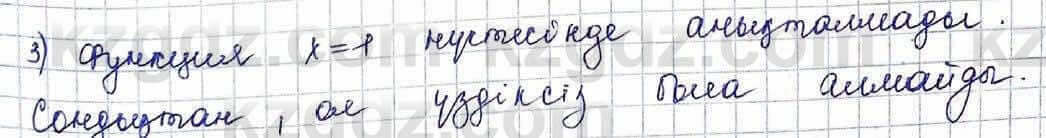 3) Функция x=1 нүктесінде анықталмады.
Сондықтан, ол үздіксіз бола алмайды.